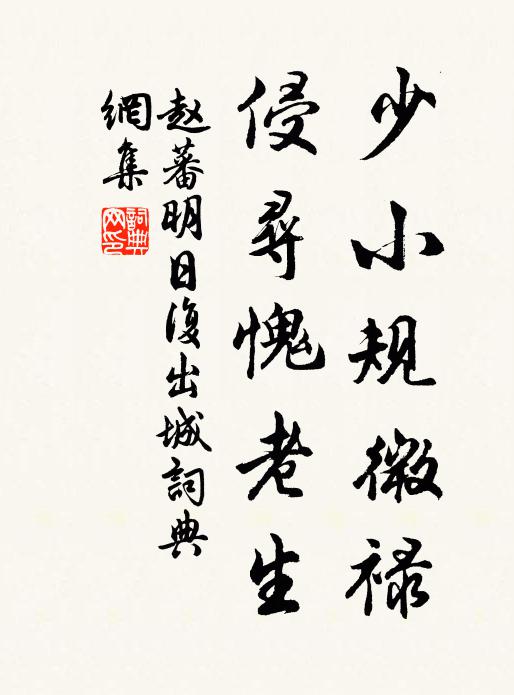 少小规微禄
侵尋愧老生
赵蕃明日復出城詞典
網集
詞典
网印